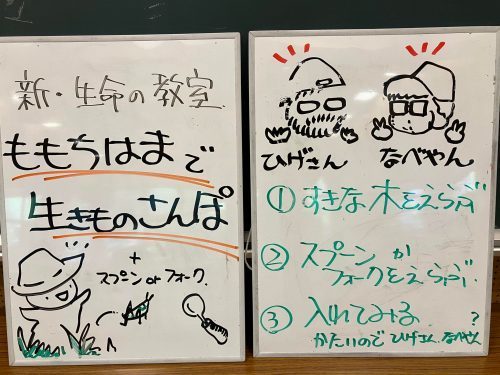 新・生命の教室
ももちはまで
生きものさんぽ
+
スプーン or フォーク
ひげさん
なべやん
① すきな木をえらぶ
② スプーンか
フォークをえらぶ
③ 入れてみる
?
かたいので ひげさん なべやん